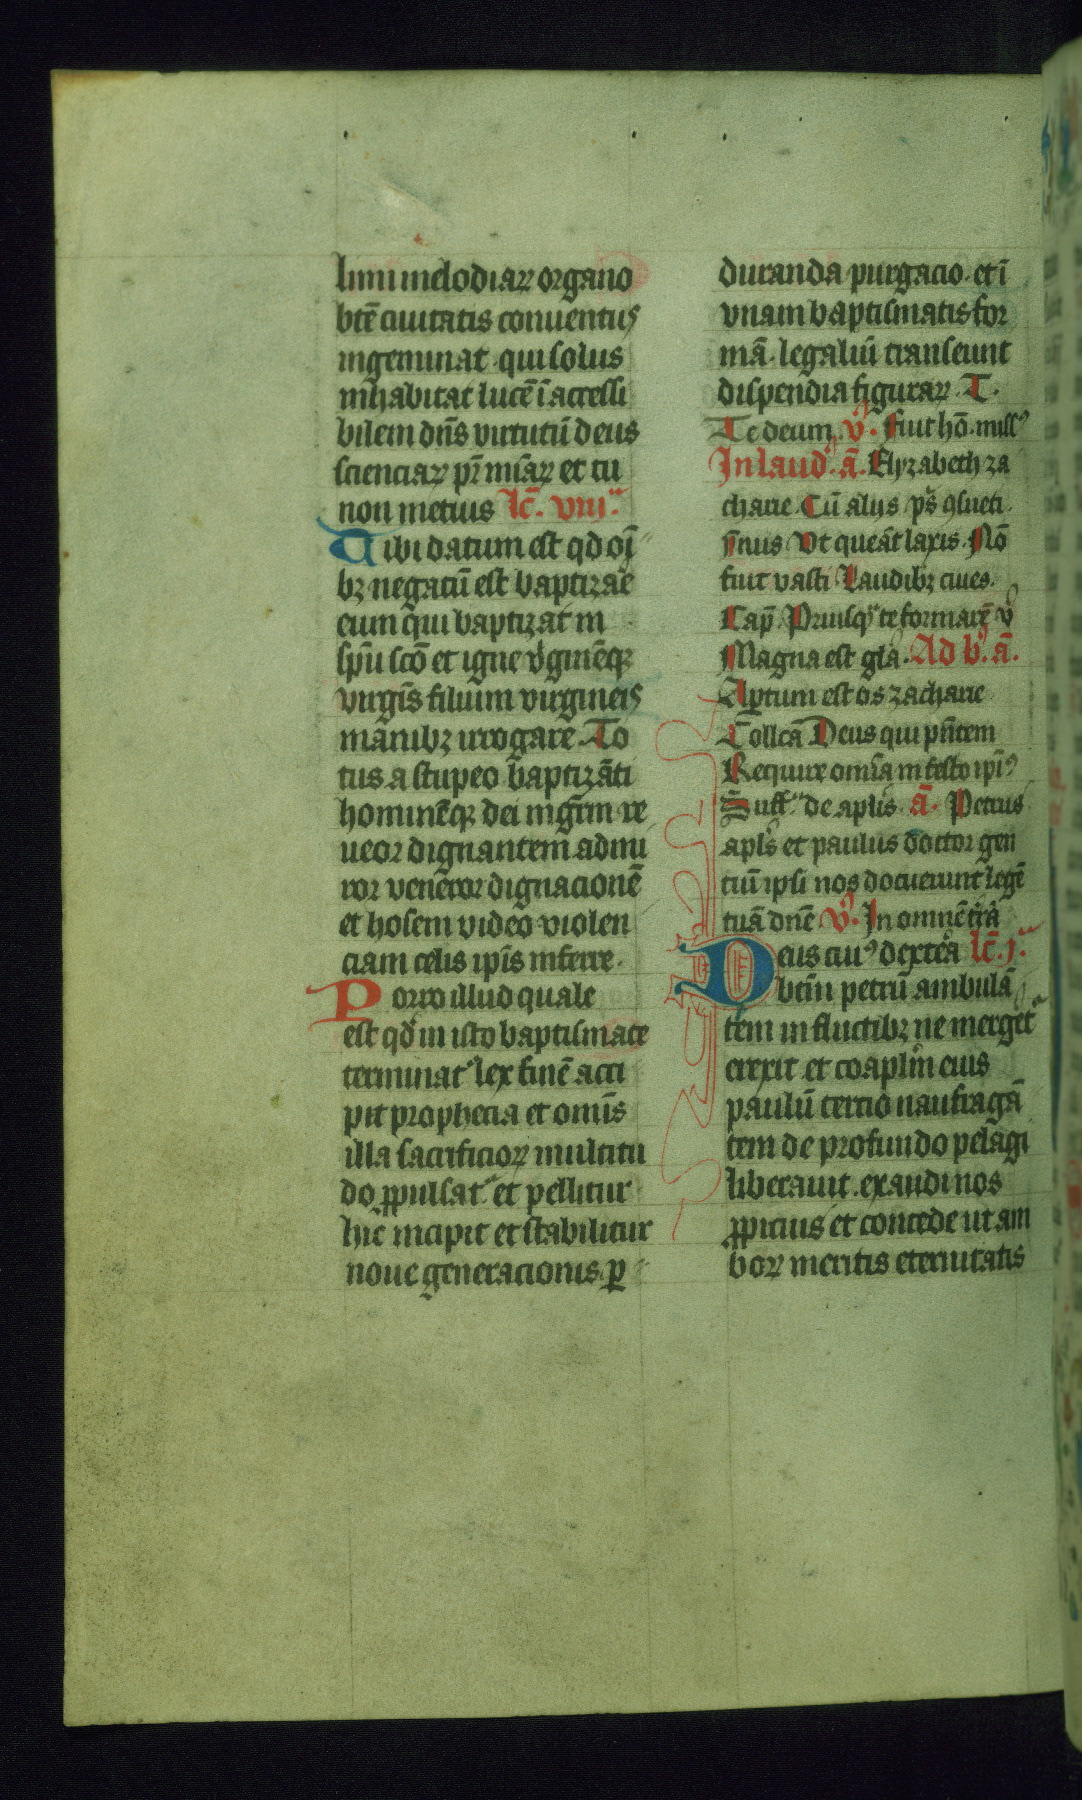 limi melodiaꝝ organo
btē ciuitatis conuentus
ingeminat · qui solus
inhabitat lucē ī accessi
bilem dn̄s virtutū deus
scienciaꝝ pr̄ mīaꝝ et tu
non metuis lc̄. viii.
Tibi datum est qd oī
bꝫ negatū est baptizaē
eum qui baptizat in
sp̄u scō et igne v̓ginēqꝫ
virgīs filium virgineis
manibꝫ irrogare. To
tus a stupeo baptizāti
hominēqꝫ dei ingēm re
ueor dignantem admi
ror veneror dignacionē
et hosem video violen
ciam celis ip̄is inferre.
Porro illud quale
est qd̓ in isto baptismate
terminat᷑ lex finē acci
pit prophecia et omīs
illa sacrificioꝝ multitu
do ꝓpulsat᷑ et pellitur
hic incipit et stabilitur
noue generacionis ꝑ
duranda purgacio. et ī
vnam baptismatis for
mā. legaliū transeunt
dispendia figuraꝝ. T.
Te deum. v̓. Fuit hō. miss᷒
In laud̓. ā. Elyzabeth za
charie. Cū alijs ps̓ ꝯsueti.
ym̄us Vt queāt laxis. Nō
fuit vasti Laudibꝫ ciues.
Cap̄. Priusqᷓ te formarē v̓
Magna est gl̓a. Ad b̓. ā.
Apertum est os zacharie
Collcā Deus qui pn̄tem
Require omīa in festo ip̄i᷒
Suff᷑ de apl̓is. ā. Petrus
apl̓s et paulus doctor gen
tiū ipsi nos docuerunt legē
tuā dn̄e v̓. In omnē t̓rā
Deus cui᷒ dextēa lc̄. j.
btm̄ petrū ambulā
tem in fluctibꝫ ne merget᷑
erexit et coapl̓m eius
paulū tercio naufragā
tem de profundo pelagi
liberauit. exaudi nos
ꝓpicius et concede ut am
boꝝ meritis eternitatis